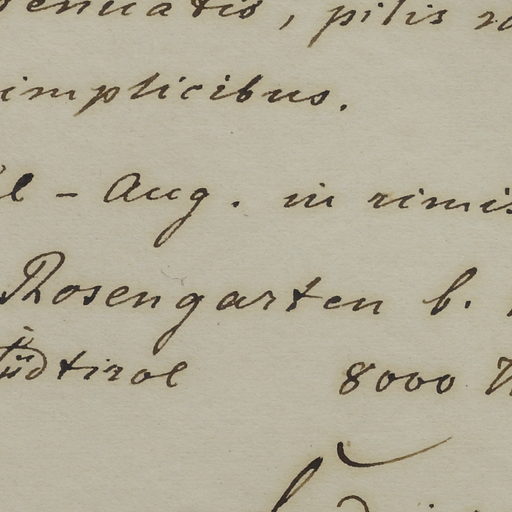 enuatis, pilis
implicibus.
l - Aug. in rimis
Rosengarten b.
üdtirol 8000